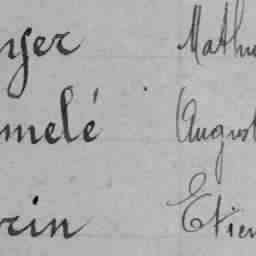 nger Mathu
melé August
rin Etien